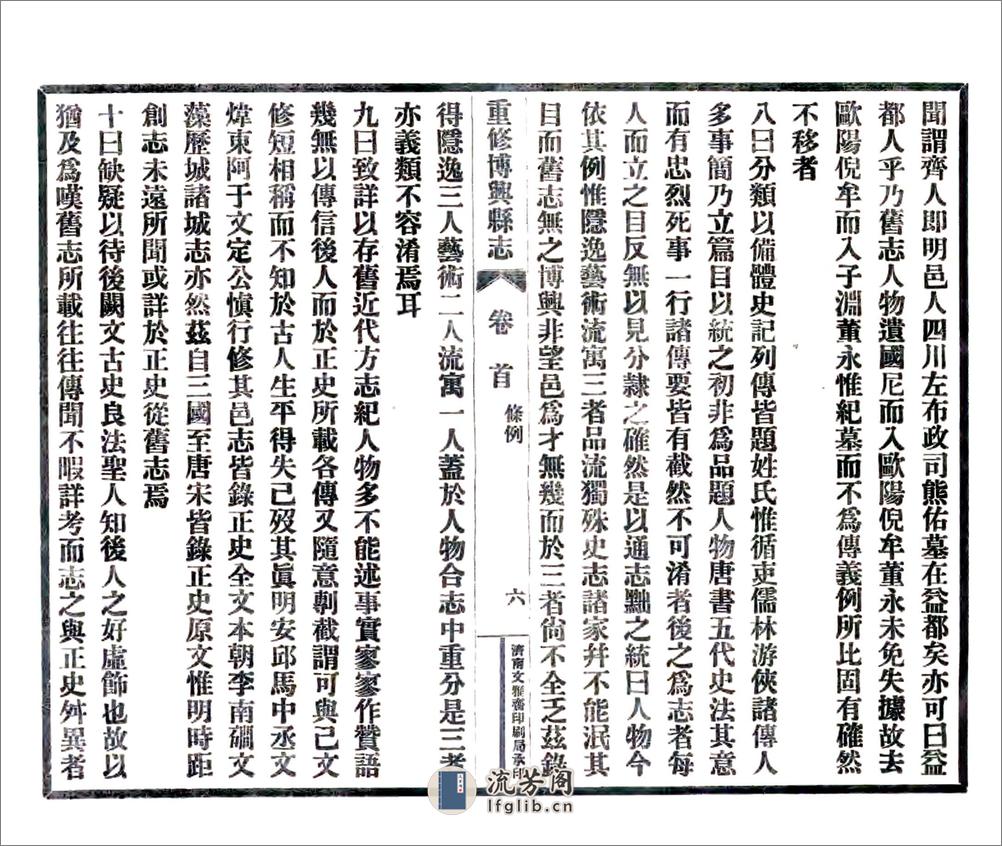 聞謂齊人即明邑人四川左布政司熊佑墓在益都矣亦可曰益
都人乎乃舊志人物遺國尼而入歐陽倪牟董永未免失據故去
歐陽倪牟而入子淵董永惟紀墓而不為傳義例所比固有確然
不移者
八曰分類以備體史記列傳皆題姓氏惟循吏儒林游俠諸傳人
多事簡乃立篇目以統之初非為品題人物唐書五代史法其意
而有忠烈死事一行諸傳要皆有截然不可淆者後之為志者每
人而立之目反無以見分隸之確然是以通志黜之統曰人物今
依其例惟隱逸藝術流寓三者品流獨殊史志諸家幷不能泯其
目而舊志無之博興非望邑為才無幾而於三者尙不全乏茲錄
重修博興縣志
卷首
條例
六
濟南文雅齋印刷局承印
得隱逸三人藝術二人流寓一人蓋於人物合志中重分是三者
亦義類不容淆焉耳
九曰致詳以存舊近代方志紀人物多不能述事實寥寥作贊語
幾無以傳信後人而於正史所載各傳又隨意剸截謂可與己文
修短相稱而不知於古人生平得失已歿其眞明安邱馬中丞文
煒東阿于文定公愼行修其邑志皆錄正史全文本朝李南磵文
藻歷城諸城志亦然茲自三國至唐宋皆錄正史原文惟明時距
創志未遠所聞或詳於正史從舊志焉
十曰缺疑以待後闕文古史良法聖人知後人之好虛飾也故以
猶及為嘆舊志所載往往傳聞不暇詳考而志之與正史舛異者
流芳阁
lfglib.cn